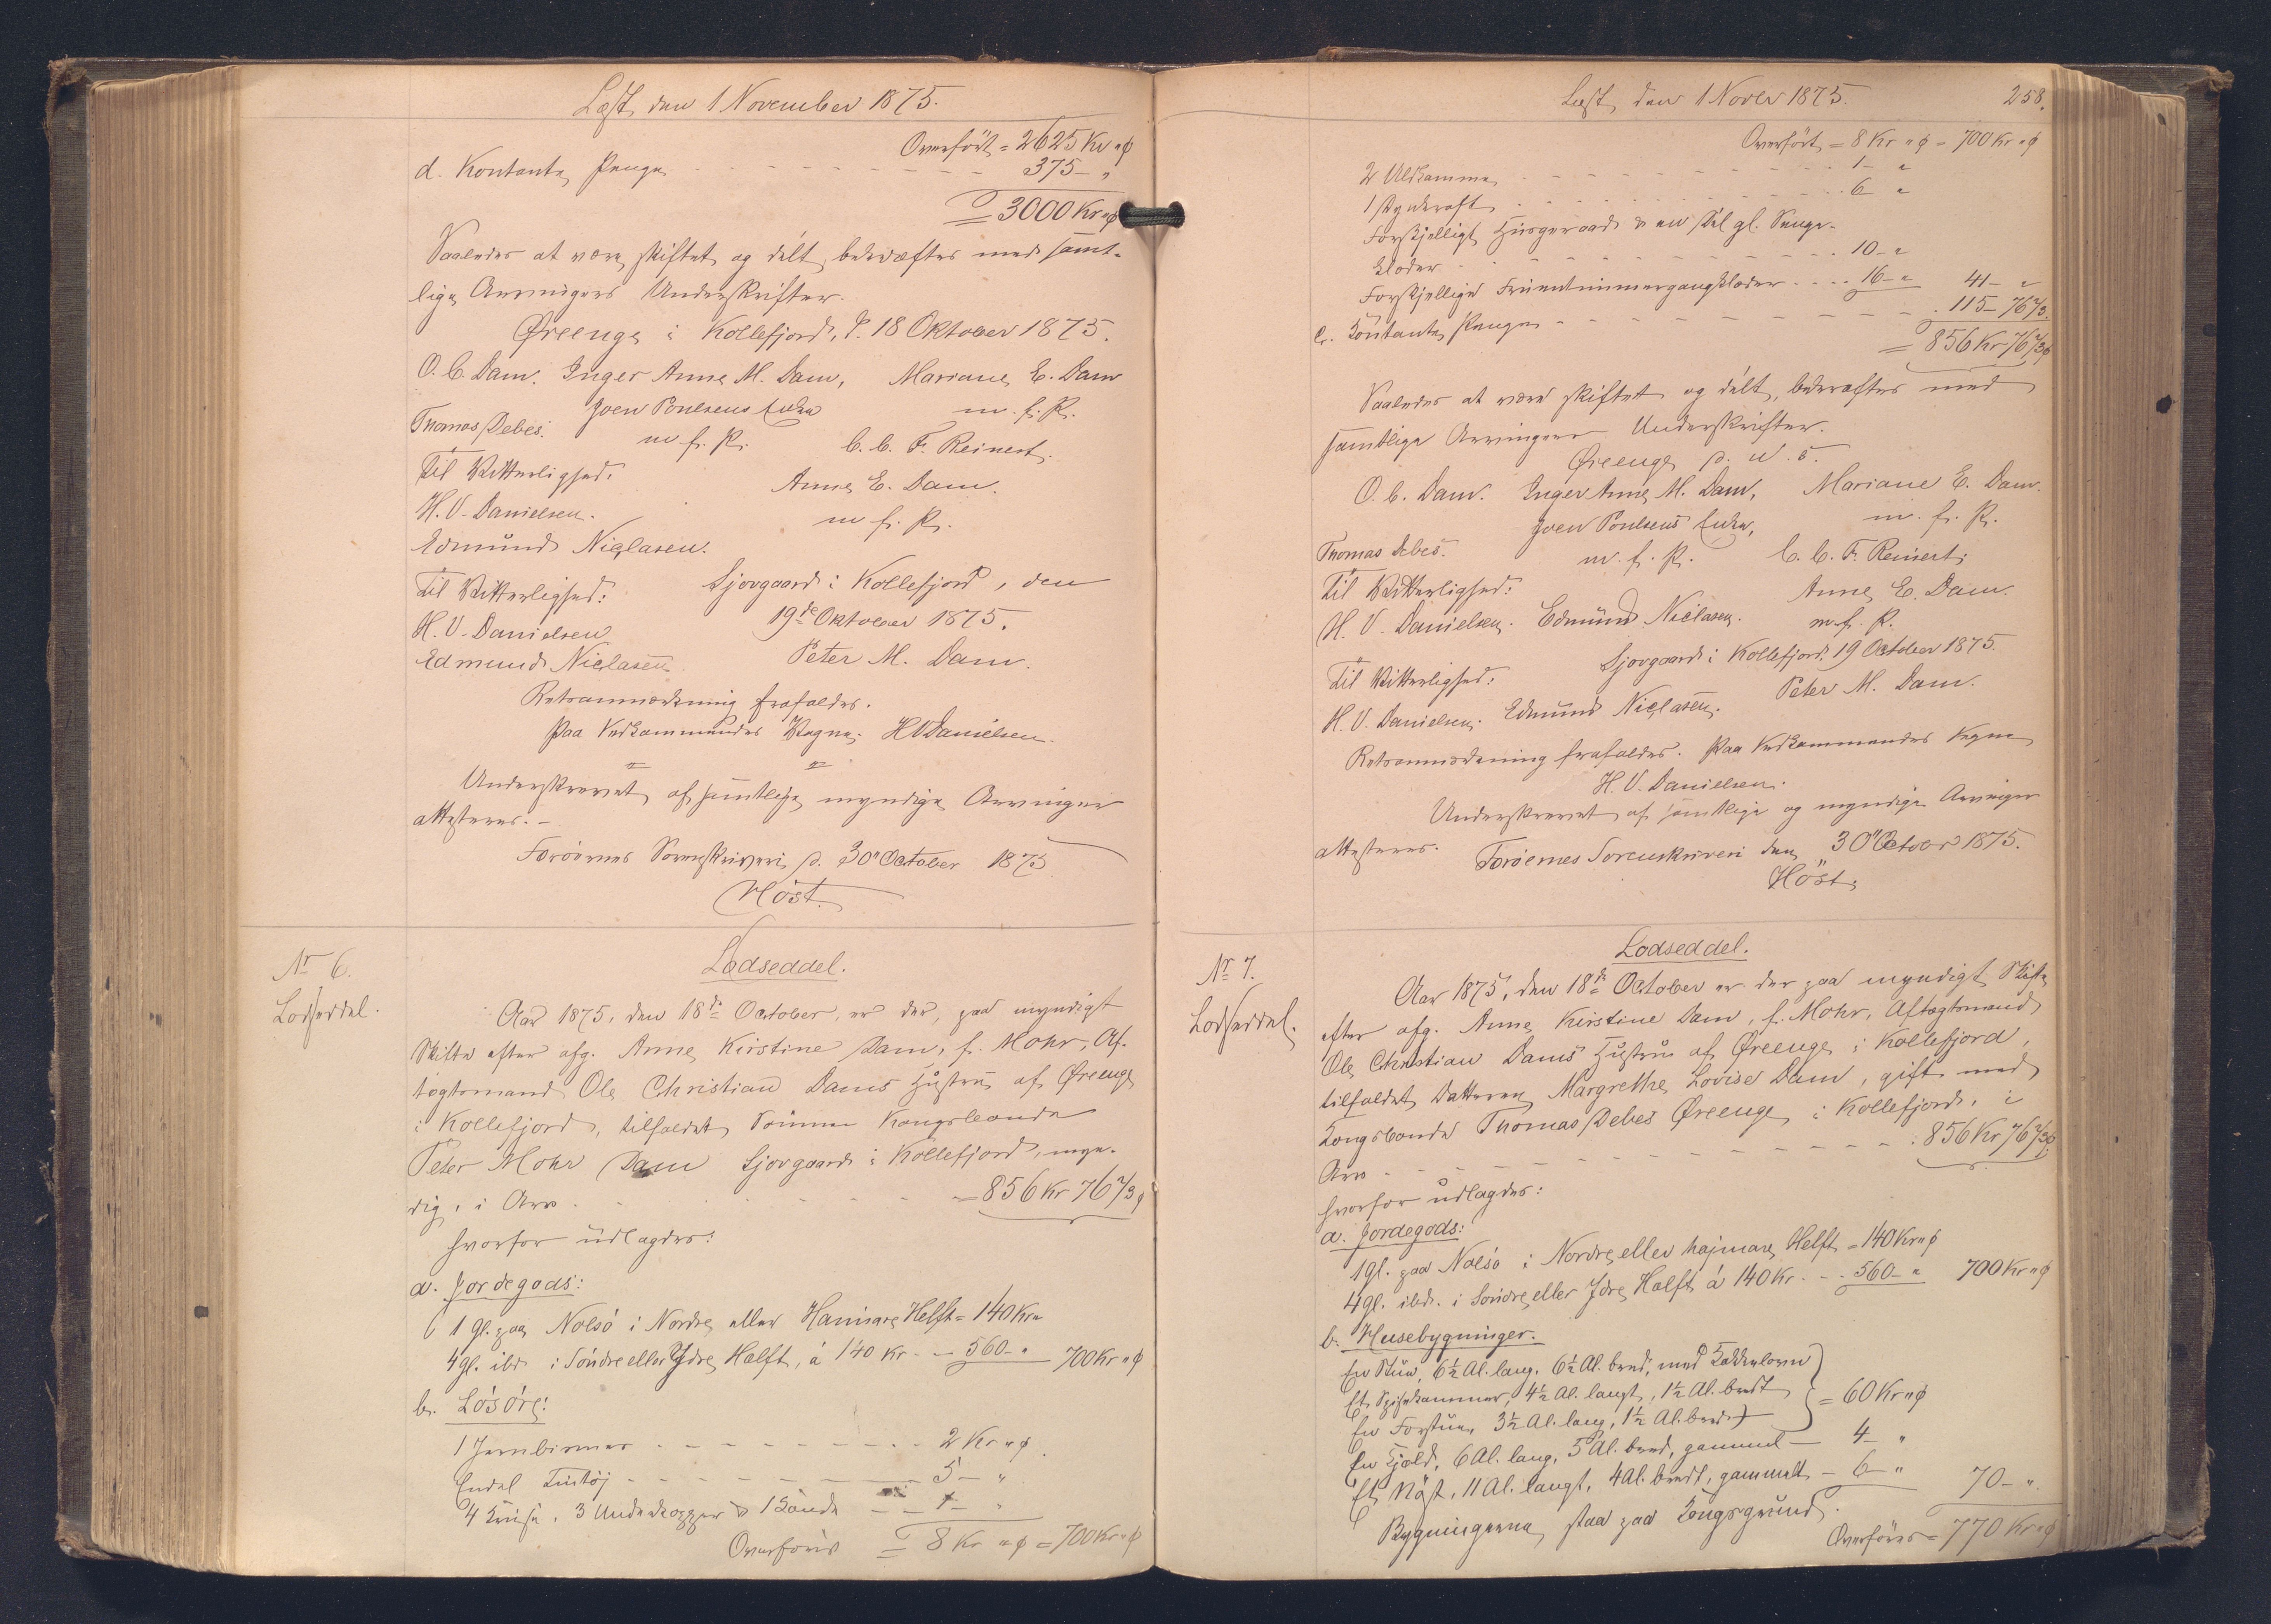 Læst den 1 November 1875.
Overført = 2625 Kr „ ø
d. Kontante Penge - - - - 375 - „
= 3000 Kr „ ø
Saaledes at være skiftet og delt, bekræftes med samt-
lige Arvingers Underskrifter.
Øreenge i Kollefjord, d. 18 Oktober 1875.
O. C. Dam. Inger Anne M. Dam, Mariane E. Dam
Joen Poulsens Enke m. f. P.
Thomas Debes. m. f. P. C. C. F. Reinert.
Til Vitterlighed: Anne E. Dam.
H. V. Danielsen. m. f. P.
Edmund Niclasen.
Til Vitterlighed: Sjovgaard i Kollefjord, den
H. V. Danielsen 19de Oktober 1875.
Edmund Niclasen. Peter M. Dam.
Retsanmærkning frafaldes.
Paa Vedkommendes Vegne. HVDanielsen.
Underskrevet af samtlige myndige Arvinger
attesteres. -
Færøernes Sorenskriveri, d. 30' October 1875
Höst.
Nr 6.
Lodseddel.
Lodseddel.
Aar 1875, den 18de October, er der, paa myndigt
Skifte efter afg. Anne Kirstine Dam, f. Mohr, Af-
tægtsmand Ole Christian Dams Hustru af Øreenge
i Kollefjord, tilfaldet Sønnen Kongsbonde
Peter Mohr Dam Sjovgaard i Kollefjord, myn-
dig, i Arv - - - = 856 Kr 76 2/3 ø
hvorfor udlagdes:
a. Jordegods:
1 Gl. paa Nolsö i Nordre eller Hamiare Helft = 140 Kr „
4 gl. ibd. i Söndre eller Ydre Halft, á 140 Kr - - 560 - „ 700 Kr „ ø
b. Lösöre:
1 Jernbismer - - - - 2 Kr „ ø
Endel Tintøj - - - - 5 - „
4 Kruse, 3 Underkopper & 1 Kande - - 1 - „
Overføres = 8 Kr „ ø = 700 Kr „ ø
Læst den 1 Novbr 1875. 258.
Overført = 8 Kr „ ø = 700 Kr „ ø
2 Uldkamme - - - - 1 - „
1 - - - - 6 - „
Forskjelligt Husgeraad & en Del gl. Senge-
klæder - - - - 10 - „
Forskjellige Fruentimmergangklæder - - - 16 - „ 41 - „
c. Kontante Penge - - - - 115 - 76 2/3.
= 856 Kr 76 2/3 ø
Saaledes at være skiftet og delt, bekræftes med
samtlige Arvingers Underskrifter.
Øreenge d. u. s.
O. C. Dam. Inger Anne M. Dam, Mariane E. Dam.
Joen Poulsens Enke, m. f. P.
Thomas Debes. m. f. P. C. C. F. Reinert,
Til Vitterlighed: Anne E. Dam.
H. V. Danielsen. Edmund Niclasen. m. f. P.
Sjovgaard i Kollefjord, 19 October 1875.
Til Vitterlighed: Peter M. Dam.
H. V. Danielsen. Edmund Niclasen.
Retsanmærkning frafaldes. Paa Vedkommendes Vegne
H. V. Danielsen.
Underskrevet af samtlige og myndige Arvinger
attesteres. Færöernes Sorenskriveri den 30" Octobr 1875.
Höst.
Nr 7.
Lodseddel.
Lodseddel.
Aar 1875, den 18de October er der paa myndigt Skifte
efter afg. Anne Kirstine Dam, f. Mohr, Aftægtsmand
Ole Christian Dams Hustru af Øreenge i Kollefjord,
tilfaldet Datteren Margrethe Lovise Dam, gift med
Kongsbonde Thomas Debes Øreenge i Kollefjord, i
Arv - - - - 856 Kr 76 2/3 ø
hvorfor udlagdes:
a. Jordegods:
1 gl. paa Nolsö i Nordre eller hajmare Helft = 140 Kr „ ø
4 gl. ibd. i Söndre eller Ydre Halft á 140 Kr. - - 560 - „ 700 Kr „ ø
b. Husebygninger.
En Stue, 6 1/2 Al. lang, 6 1/2 Al. bred, med Kakkelovn
Et Spisekammer, 4 1/2 Al. langt, 1 1/2 Al. bredt = 60 Kr „ ø
En Forstue, 3 1/2 Al. lang, 1 1/2 Al. bred
En Hjald, 6 Al. lang, 5 Al. bred, gammel - 4 - „
Et Nøst, 11 Al. langt, 4 Al. bredt, gammelt - 6 - „ 70 - „
Bygningerne staa paa Kongsgrund.
Overføres = 770 Kr „ ø